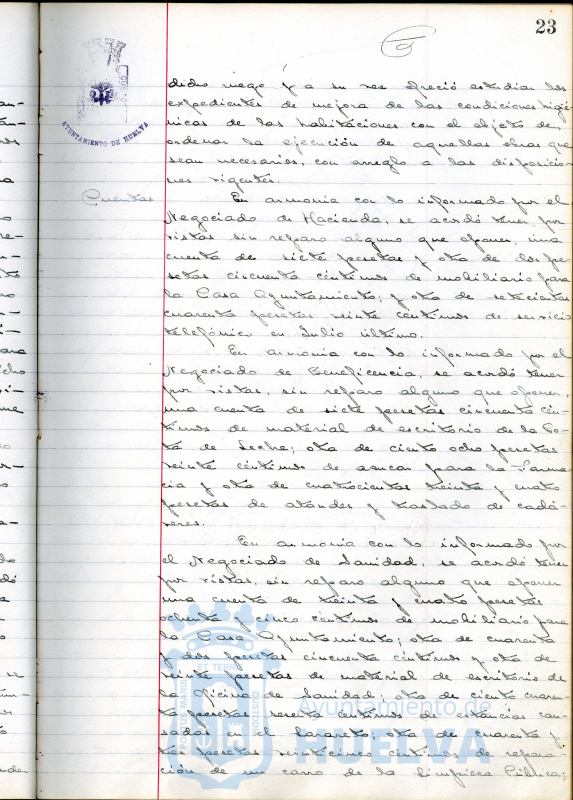 23
AYUNTAMIENTO DE HUELVA
dicho ruego y a su vez ofreció estudiar los
expedientes de mejora de las condiciones higié-
nicas de las habitaciones con el objeto de
ordenar la ejecución de aquellas obras que
sean necesarias, con arreglo a las disposicio-
nes vigentes.
Cuentas
En armonia con lo informado por el
Negociado de Hacienda, se acordó tener por
vistas sin reparo alguno que oponer, una
cuenta de siete pesetas y otra de dos pe-
setas cincuenta céntimos de mobiliario para
la Casa Ayuntamiento; y otra de setecientas
cuarenta pesetas veinte céntimos de servicio
telefónico en Julio último.
En armonia con lo informado por el
Negociado de Beneficencia, se acordó tener
por vistas, sin reparo alguno que oponer,
una cuenta de siete pesetas cincuenta cén-
timos de material de escritorio de la Go-
ta de Leche; otra de ciento ocho pesetas
veinte céntimos de azucar para la Farma-
cia y otra de cuatrocientas treinta y cuatro
pesetas de ataudes y traslado de cadá-
veres.
En armonia con lo informado por
el Negociado de Sanidad, se acordó tener
por vistas, sin reparo alguno que oponer
una cuenta de treinta y cuatro pesetas
ochenta y cinco céntimos de mobiliario para
la Casa Ayuntamiento; otra de cuarenta
y dos pesetas cincuenta céntimos y otra de
veinte pesetas de material de escritorio de
la Oficina de Sanidad; otra de ciento cuaren-
ta pesetas noventa céntimos de estancias cau-
sadas en el Lazareto; otra de cuarenta y
tres pesetas veinticinco céntimos de repara-
ción de un carro de la Limpieza Pública;
PORTUS MARIS ET TERRAE CUSTODIA
Ayuntamiento de
HUELVA